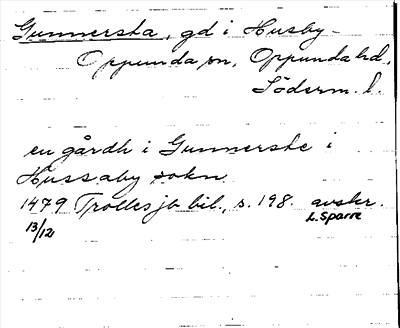 Gunnersta, gd i Husby-
Oppunda sn, Oppunda hd,
Söderm. l.
en gårdh i Gunnerste i
Hussaby sokn
1479 Trolles jb bil., s. 198. avskr.
13/12 L. Sparre